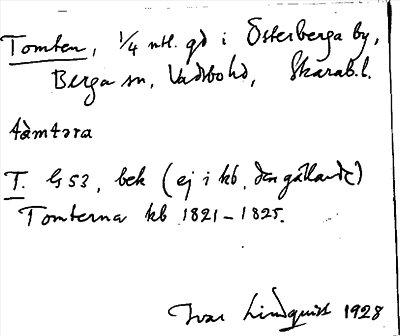 Tomten, 1/4 mtl. gd i Österberga by,
Berga sn, Vadsbo hd, Skarab.l.
tåmtəra
T. G 53, bek (ej i kb, den gällande)
Tomterna kb 1821–1825.
Ivar Lindquist 1928